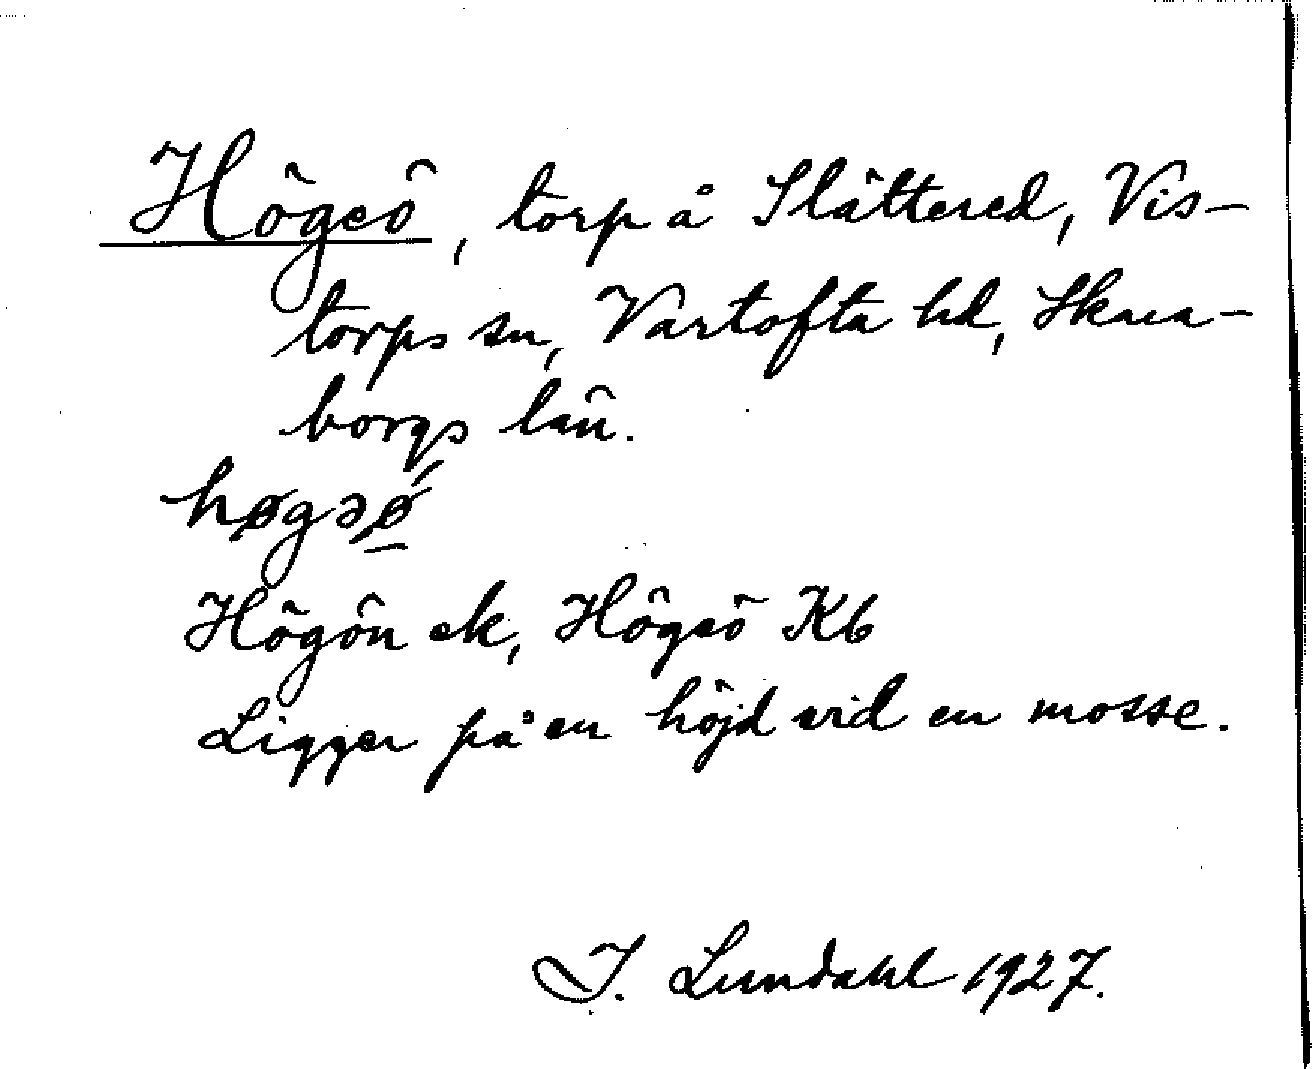 Högeö, torp å Slättered, Vis-
torps sn, Vartofta hd, Skara-
borgs län.
høgəǿ̱
Högön ek, Högeö Kb
Ligger på en höjd vid en mosse.
I. Lundahl 1927.